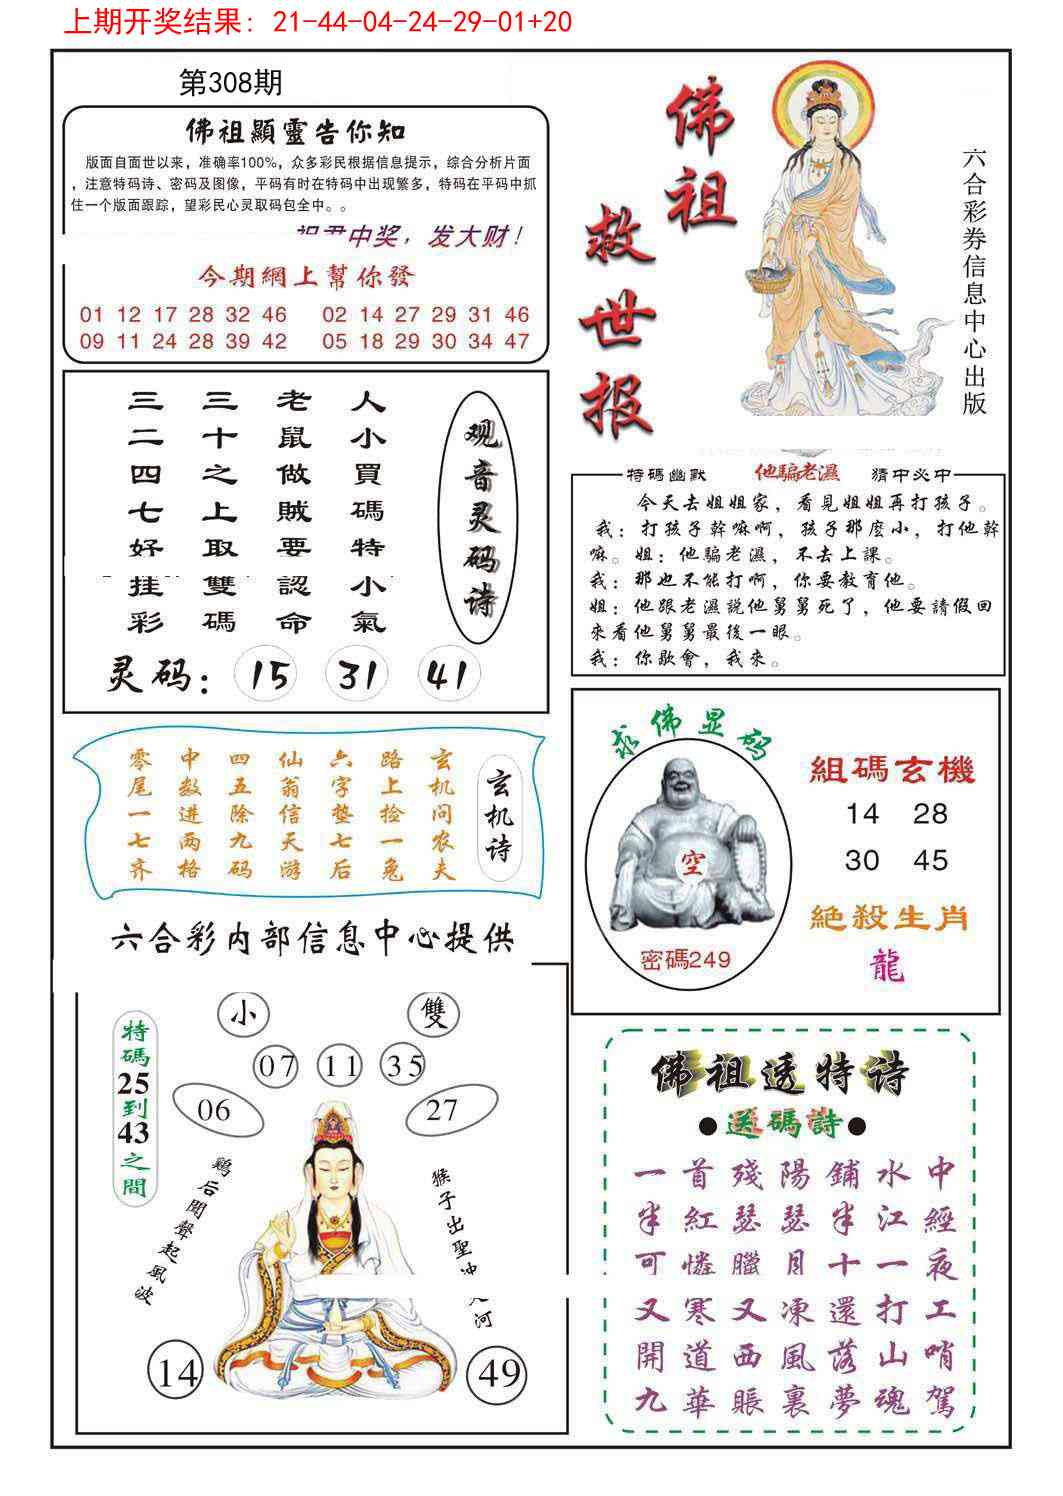 上期开奖结果：21-44-04-24-29-01+20
第308期
佛祖顯靈告你知
版面自面世以来，准确率100%，众多彩民根据信息提示，综合分析片面
，注意特码诗、密码及图像，平码有时在特码中出现繁多，特码在平码中抓
住一个版面跟踪，望彩民心灵取码包全中。。
祝君中奖，发大财！
今期網上幫你發
01 12 17 28 32 46 02 14 27 29 31 46
09 11 24 28 39 42 05 18 29 30 34 47
佛祖
救世报
六合彩券信息中心出版
观音灵码诗
人小買碼特小氣
老鼠做賊要認命
三十之上取雙碼
三二四七好挂彩
灵码：15 31 41
特碼幽默 他騙老濕 猜中必中
今天去姐姐家，看見姐姐再打孩子。
我：打孩子幹嘛啊，孩子那麼小，打他幹
嘛。姐：他騙老濕，不去上課。
我：那也不能打啊，你要教育他。
姐：他跟老濕説他舅舅死了，他要請假回
來看他舅舅最後一眼。
我：你歇會，我來。
玄机诗
玄机问农夫
路上捡一兔
六字垫七后
仙翁信天游
四五除九码
中数进两格
零尾一七齐
求佛显码
空
密碼249
組碼玄機
14 28
30 45
絕殺生肖
龍
六合彩内部信息中心提供
特碼25到43之間
小 雙
07 11 35
06 27
鷄后聞聲起風波
猴子出聖冲 河
14 49
佛祖透特诗
●送碼詩●
一首殘陽鋪水中
半紅瑟瑟半江經
可憐臘月十一夜
又寒又凍還打工
開道西風落山哨
九華賬裏夢魂駕